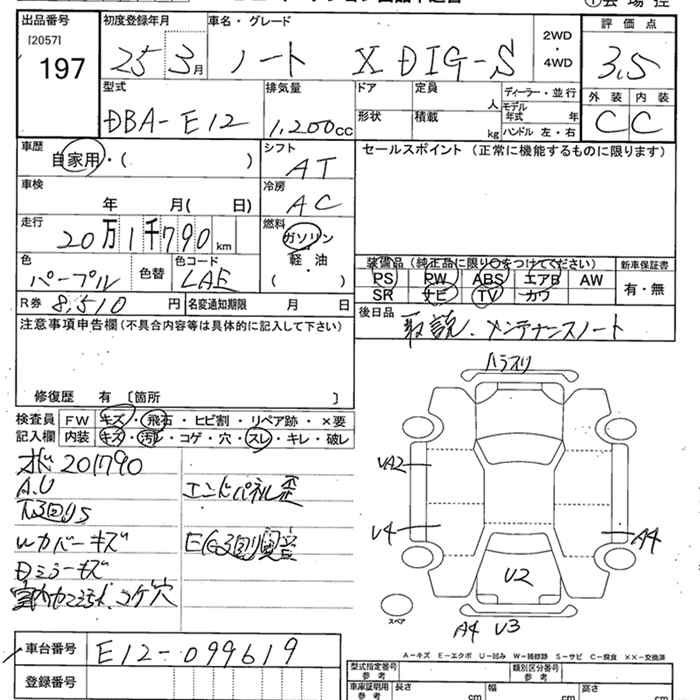 出品番号
[2057]
197
初度登録年月
25 3月
車名・グレード
ノート X DIG-S
2WD
・
4WD
評価点
3.5
外装 内装
C C
型式
DBA-E12
排気量
1,200cc
ドア
形状
定員 人
積載 kg
ディーラー・並行
モデル年式 年
ハンドル 左・右
車歴
自家用・( )
シフト
AT
セールスポイント (正常に機能するものに限ります)
車検
年 月( 日)
冷房
AC
走行
20万1千790km
燃料
ガソリン
軽・油
( )
色
パープル
色替
色コード
LAE
装備品 (純正品に限り○をつけてください)
PS PW ABS エアB AW
SR ナビ TV カワ
新車保証書
有・無
R券 8,510円
名変通知期限 月 日
後日品
取説.メンテナンスノート
注意事項申告欄(不具合内容等は具体的に記入して下さい)
修復歴 有 [箇所 ]
検査員記入欄
FW キズ・飛石・ヒビ割・リペア跡・×要
内装 キズ・汚れ・コゲ・穴・スレ・キレ・破レ
201790
A.U
下回りS
カバーキズ
Dミラーキズ
コゲ穴
エンドパネル歪
異音
UA2
U4
A4
U2
A4 U3
スペア
A-キズ E-エクボ U-凹み W-補修跡 S-サビ C-腐食 ××-交換済
車台番号
E12-099619
登録番号
型式指定番号
類別区分番号
車庫証明用
長さ cm
幅 cm
高さ cm